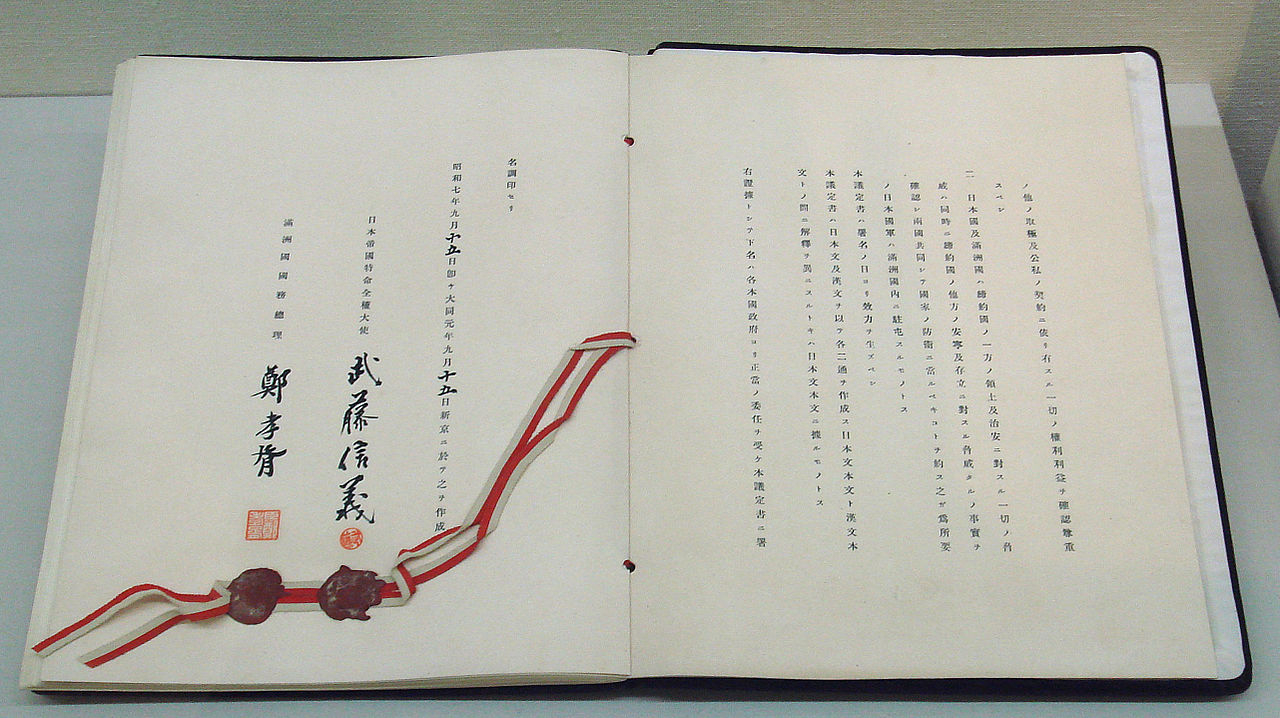 ノ他ノ取極及公私ノ契約ニ依リ有スル一切ノ權利利益ヲ確認尊重
スベシ
二 日本國及滿洲國ハ締約國ノ一方ノ領土及治安ニ對スル一切ノ脅
威ハ同時ニ締約國ノ他方ノ安寧及存立ニ對スル脅威タルノ事實ヲ
確認シ兩國共同シテ國家ノ防衞ニ當ルベキコトヲ約ス之ガ爲所要
ノ日本國軍ハ滿洲國內ニ駐屯スルモノトス
本議定書ハ署名ノ日ヨリ效力ヲ生ズベシ
本議定書ハ日本文及漢文ヲ以テ各二通ヲ作成ス日本文本文ト漢文本
文トノ間ニ解釋ヲ異ニスルトキハ日本文本文ニ據ルモノトス
右證據トシテ下名ハ各本國政府ヨリ正當ノ委任ヲ受ケ本議定書ニ署
名調印セリ
昭和七年九月十五日卽チ大同元年九月十五日新京ニ於テ之ヲ作成
日本帝國特命全權大使
武藤信義
滿洲國國務總理
鄭孝胥